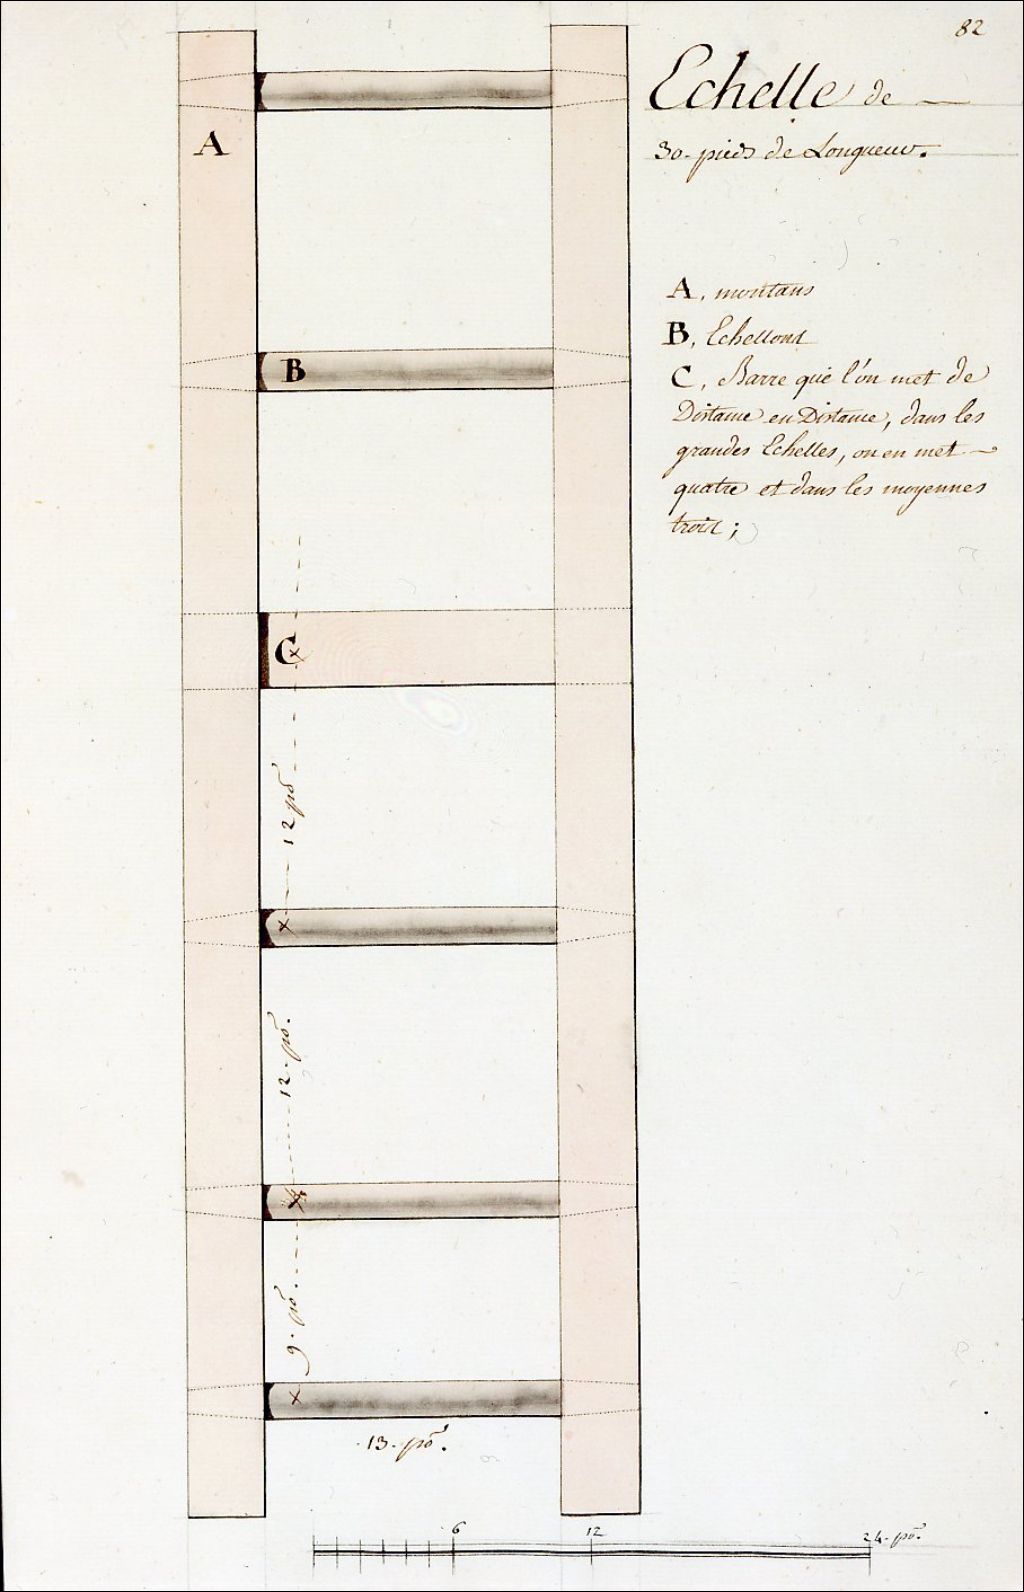 82
Echelle de
30. pieds de Longueur.
A
A, montans
B, Echellons
C, Barre que l'on met de
Distance en Distance, dans les
grandes Echelles, on en met
quatre et dans les moyennes
trois ;
B
C
12 po
12. po.
9. po.
13. po.
6 12 24. po.